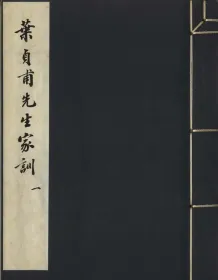 葉貞甫先生家訓
一